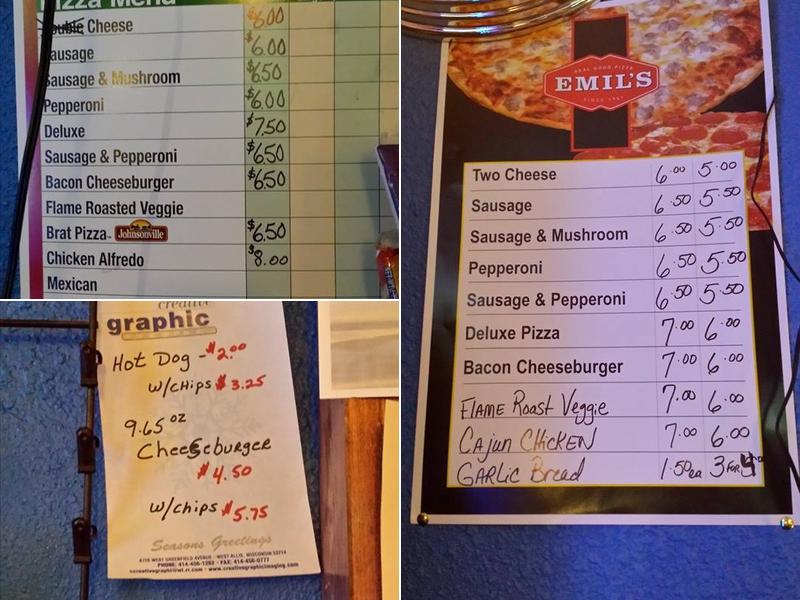 Pizza Menu
Double Cheese $6.00
Sausage $6.00
Sausage & Mushroom $6.50
Pepperoni $6.00
Deluxe $7.50
Sausage & Pepperoni $6.50
Bacon Cheeseburger $6.50
Flame Roasted Veggie
Brat Pizza Johnsonville $6.50
Chicken Alfredo $8.00
Mexican
creative
graphic
Hot Dog - $2.00
w/chips $3.25
9.65 oz
Cheeseburger
$4.50
w/chips $5.75
Seasons Greetings
WEST GREENFIELD AVENUE · WEST ALLIS, WISCONSIN 53214
REAL GOOD PIZZA
EMIL'S
SINCE
Two Cheese 6.00 5.00
Sausage 6.50 5.50
Sausage & Mushroom 6.50 5.50
Pepperoni 6.50 5.50
Sausage & Pepperoni 6.50 5.50
Deluxe Pizza 7.00 6.00
Bacon Cheeseburger 7.00 6.00
Flame Roast Veggie 7.00 6.00
Cajun Chicken 7.00 6.00
Garlic Bread 1.50ea 3 for